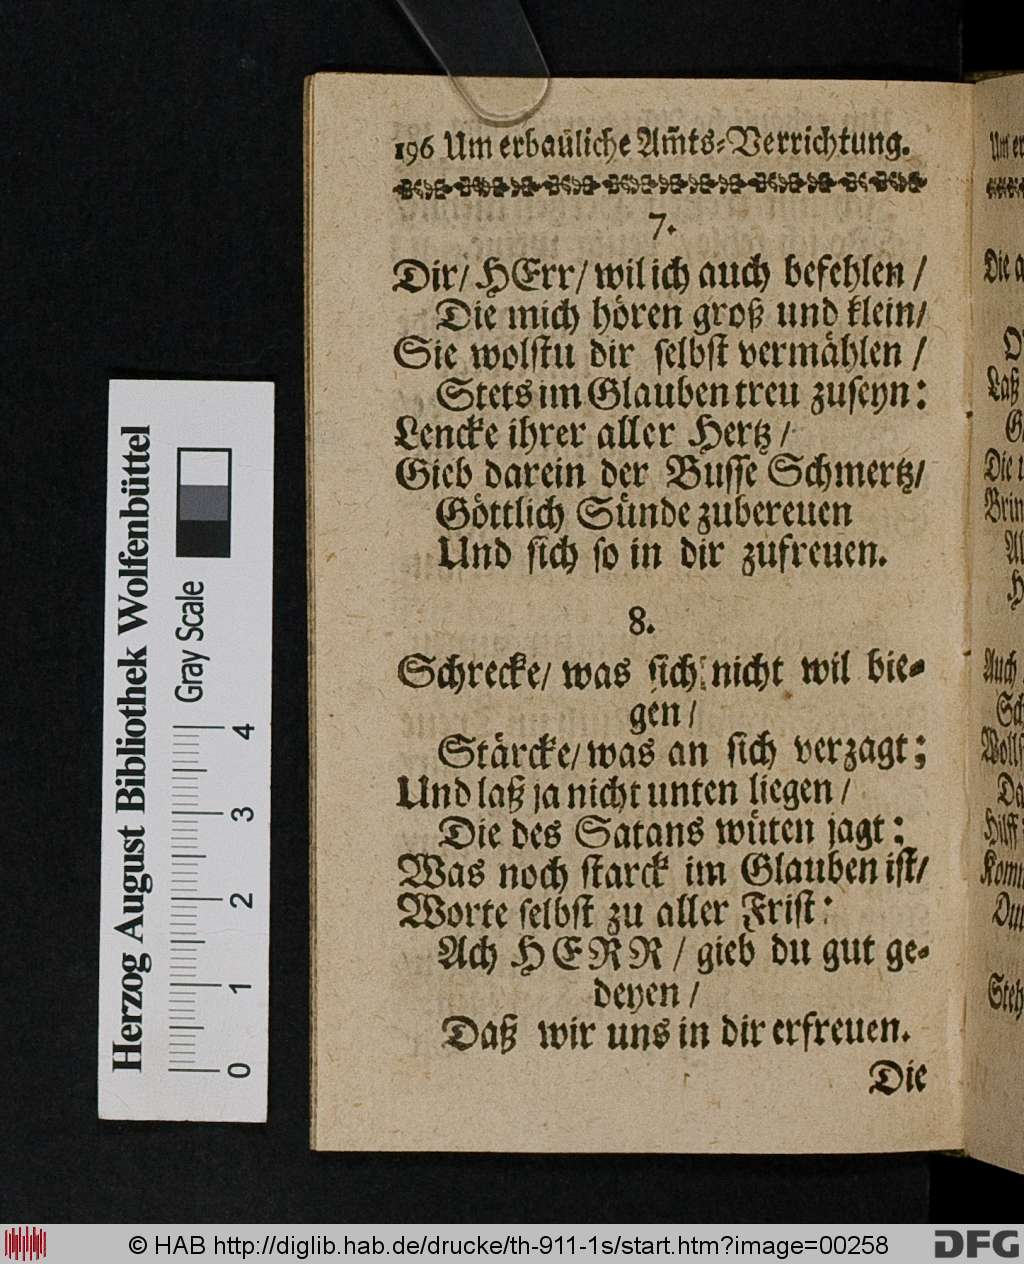 196 Um erbauliche Am̃ts-Verrichtung.
7.
Dir/ HErr/ wil ich auch befehlen /
Die mich hören groß und klein/
Sie wolstu dir selbst vermählen /
Stets im Glauben treu zuseyn:
Lencke ihrer aller Hertz /
Gieb darein der Busse Schmertz/
Göttlich Sünde zubereuen
Und sich so in dir zufreuen.
8.
Schrecke/ was sich nicht wil bie-
gen /
Stärcke/ was an sich verzagt;
Und laß ja nicht unten liegen /
Die des Satans wüten jagt:
Was noch starck im Glauben ist/
Worte selbst zu aller Frist:
Ach HERR / gieb du gut ge-
deyen /
Daß wir uns in dir erfreuen.
Die
Herzog August Bibliothek Wolfenbüttel
Gray Scale
0 1 2 3 4
© HAB http://diglib.hab.de/drucke/th-911-1s/start.htm?image=00258
DFG